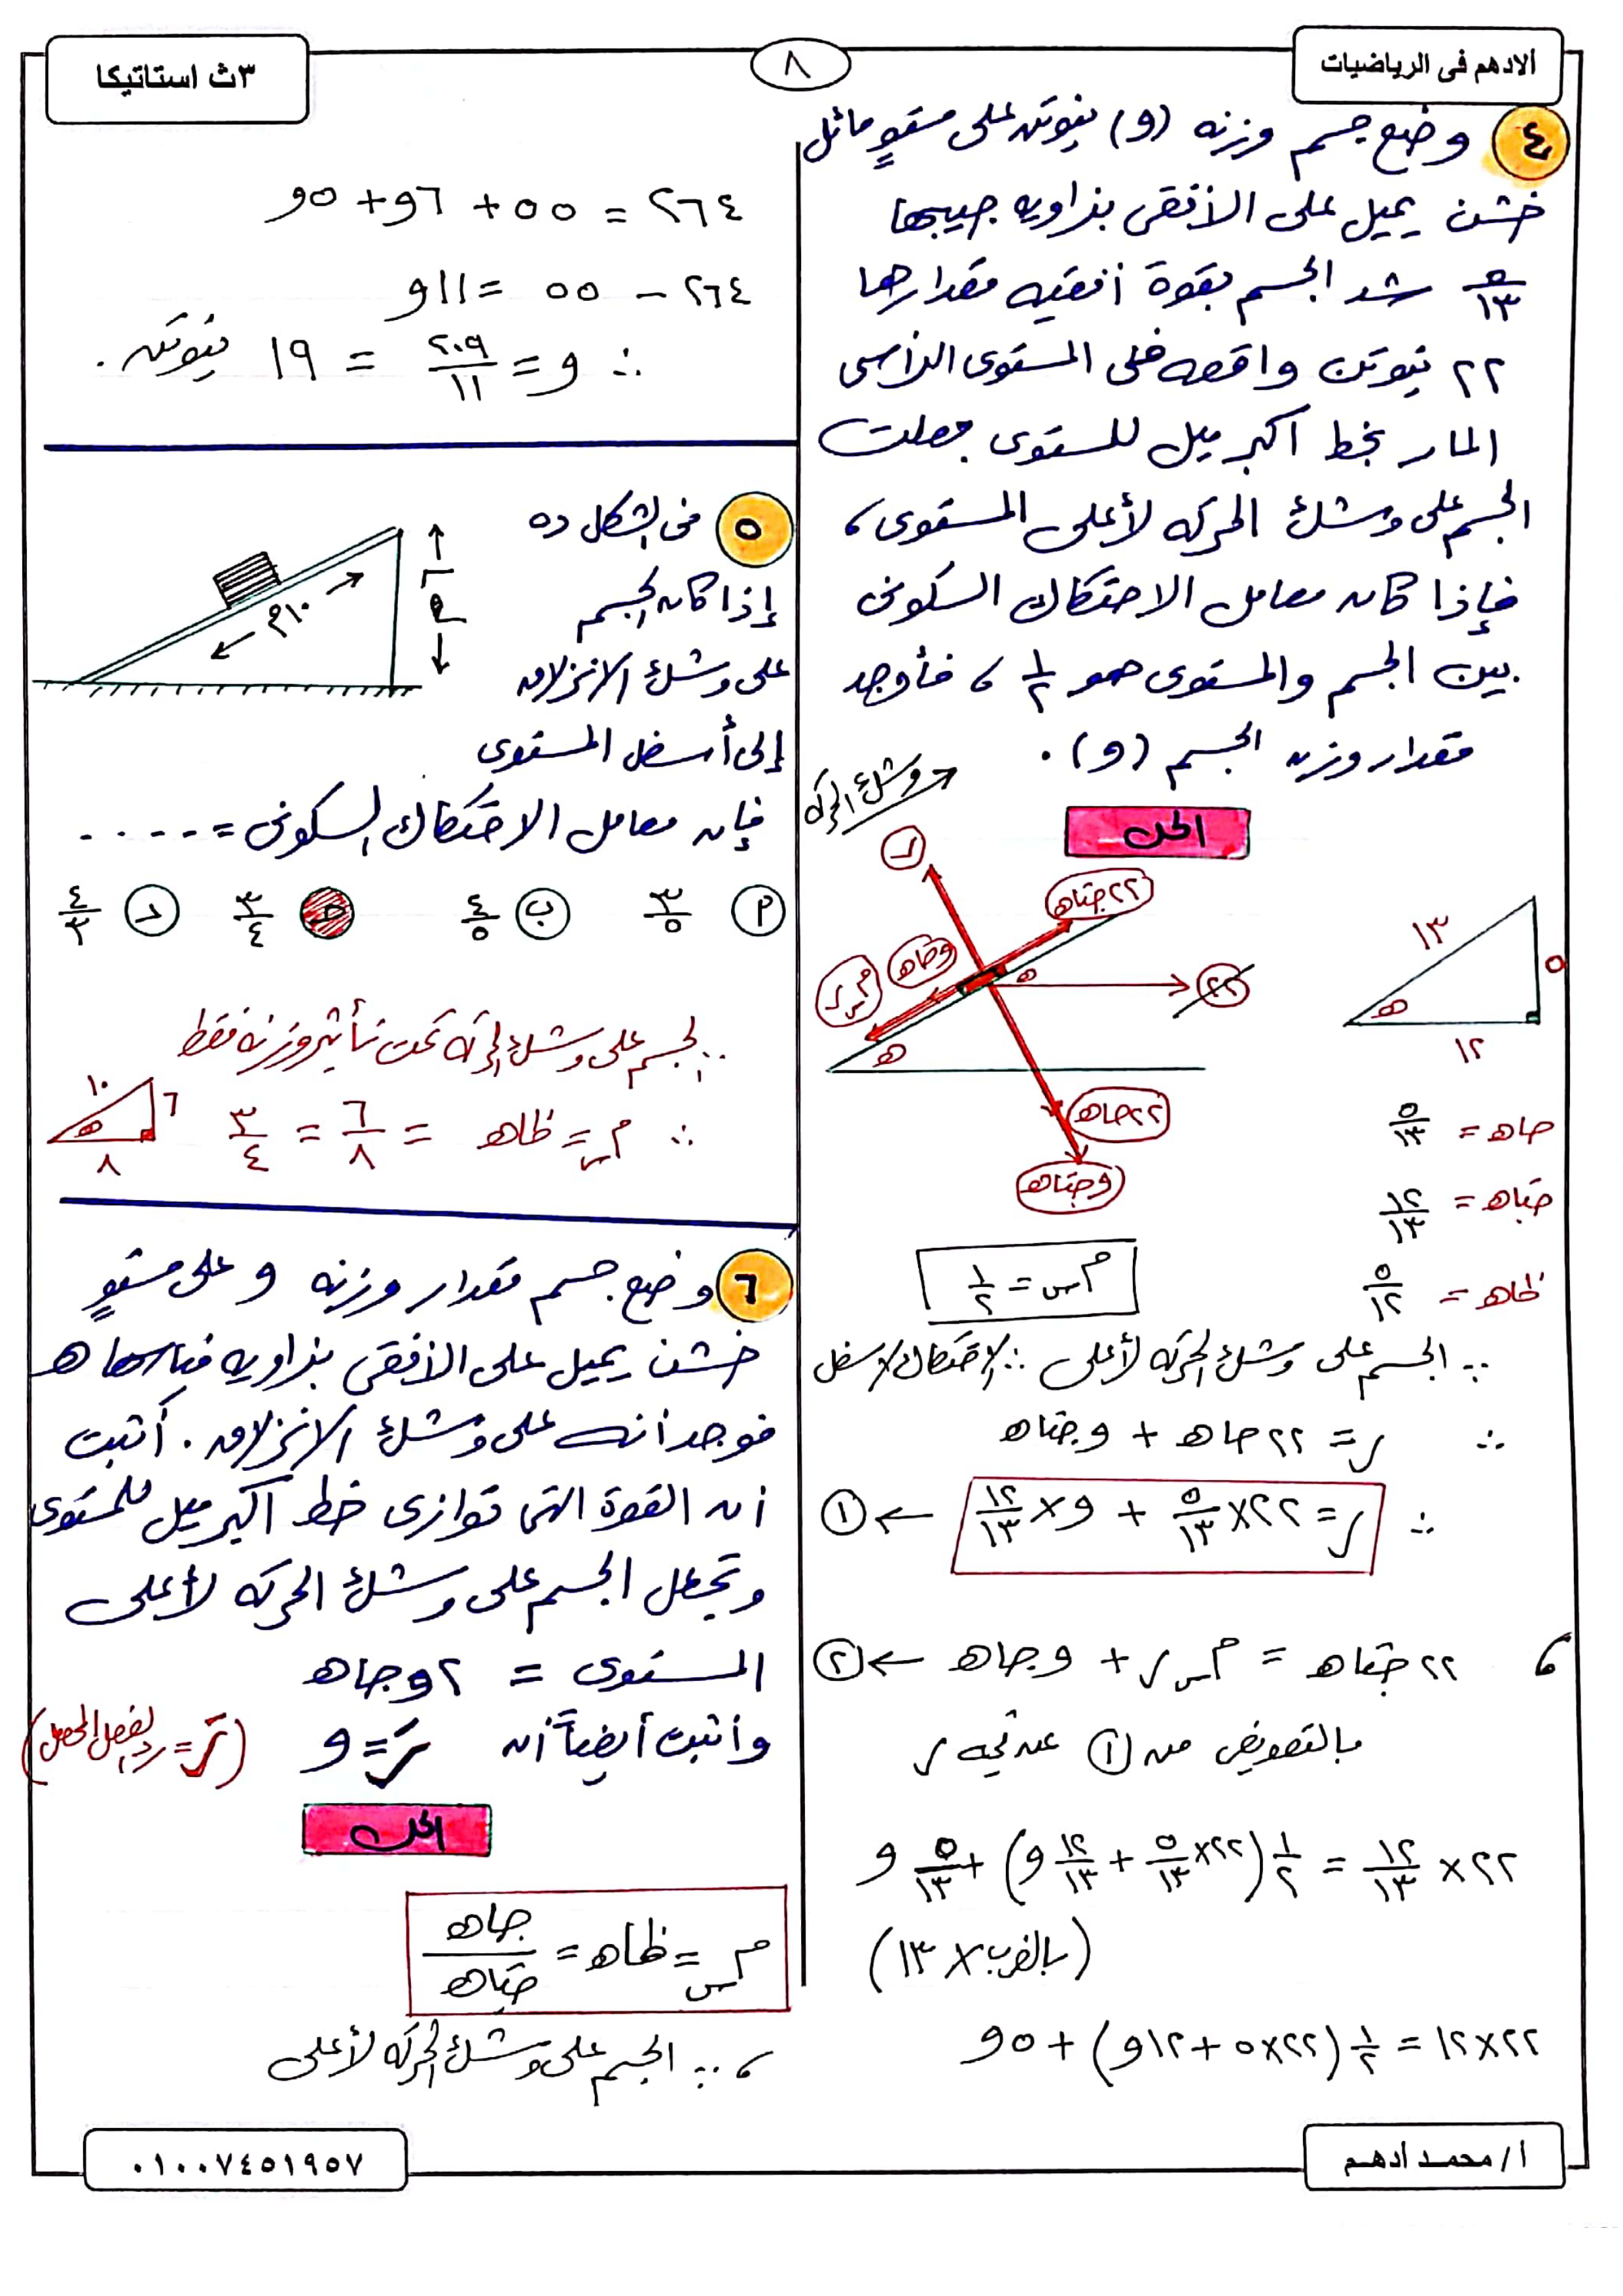 الادهم فى الرياضيات
٨
٣ث استاتيكا
٤ وضع جسم وزنه (و) نيوتن على مستوٍ مائل
خشن يميل على الأفقى بزاويه جيبها
٥/١٣ شد الجسم بقوة أفقيه مقدارها
٢٢ نيوتن واقعه فى المستوى الرأسى
المار بخط اكبر ميل للمستوى جعلت
الجسم على وشك الحركه لأعلى المستوى ،
فإذا كان معامل الاحتكاك السكونى
بين الجسم والمستوى هو ١/٢ ، فأوجد
مقدار وزن الجسم (و) .
الحل
وشك الحركه
ر
٢٢ جتاه
وجاه
م س ر
ه
٢٢
ه
٢٢ جاه
وجتاه
١٣
٥
ه
١٢
جاه = ٥/١٣
جتاه = ١٢/١٣
ظاه = ٥/١٢
م س = ١/٢
∵ الجسم على وشك الحركه لأعلى ∴ الاحتكاك لاسفل
∴ ر = ٢٢ جاه + وجتاه
∴ ر = ٢٢×٥/١٣ + و×١٢/١٣ ← ①
، ٢٢ جتاه = م س ر + وجاه ← ②
بالتعويض من ① عن قيمه ر
٢٢ × ١٢/١٣ = ١/٢ (٢٢×٥/١٣ + ١٢/١٣ و) + ٥/١٣ و
(بالضرب × ١٣)
٢٢×١٢ = ١/٢ (٢٢×٥ + ١٢و) + ٥و
٢٦٤ = ٥٥ + ٦و + ٥و
٢٦٤ - ٥٥ = ١١و
∴ و = ٢٠٩/١١ = ١٩ نيوتن .
٥ فى الشكل ده
إذا كان الجسم
على وشك الانزلاق
إلى أسفل المستوى
فإن معامل الاحتكاك السكونى = .....
١٠م
٦م
أ ٣/٥ ب ٤/٥ ج ٣/٤ د ٤/٣
∵ الجسم على وشك الحركه تحت تأثير وزنه فقط
∴ م س = ظاه = ٦/٨ = ٣/٤
١٠
٦
ه
٨
٦ وضع جسم مقدار وزنه و على مستوٍ
خشن يميل على الأفقى بزاويه قياسها ه
فوجد أنه على وشك الانزلاق . أثبت
أن القوة التى توازى خط اكبر ميل للمستوى
وتجعل الجسم على وشك الحركه لأعلى
المستوى = ٢وجاه
وأثبت أيضاً أن رَ = و
الحل
م س = ظاه = جاه/جتاه
، ∵ الجسم على وشك الحركه لأعلى
أ/ محمد أدهم
٠١٠٠٧٤٥١٩٥٧